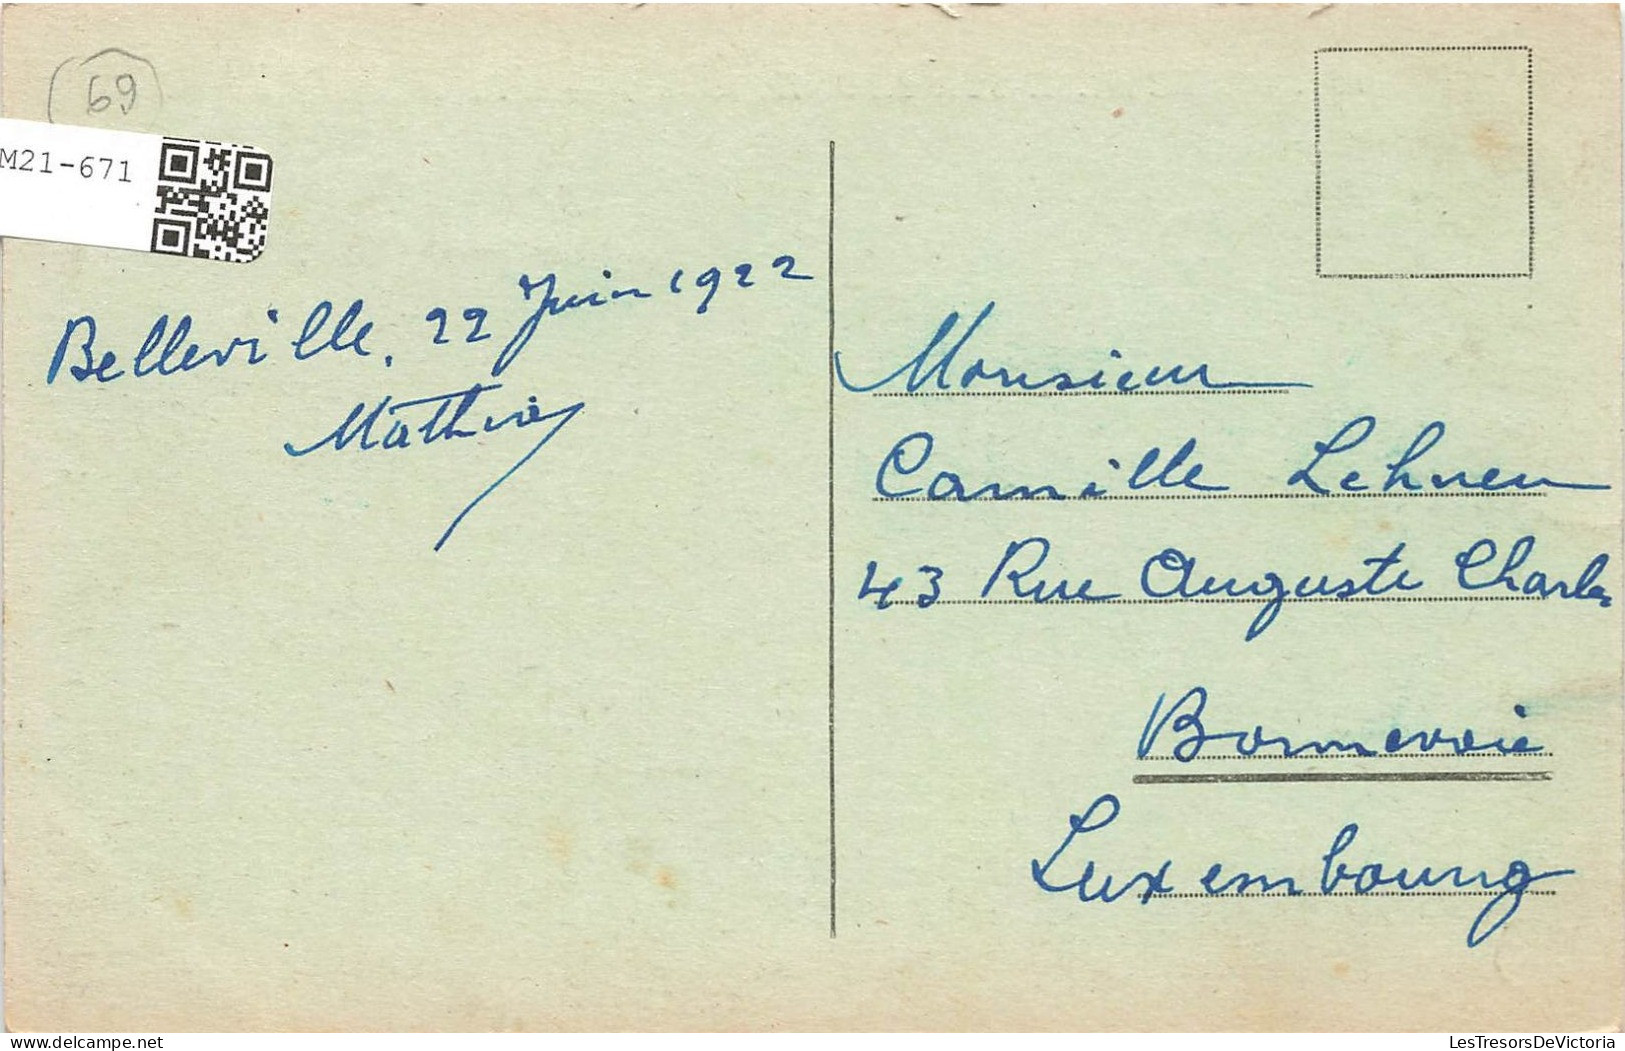 69
M21-671
Belleville, 22 Juin 1922
Mathias
Monsieur
Camille Lehnen
43 Rue Auguste Charles
Bonnevoie
Luxembourg
delcampe.net
LesTresorsDeVictoria